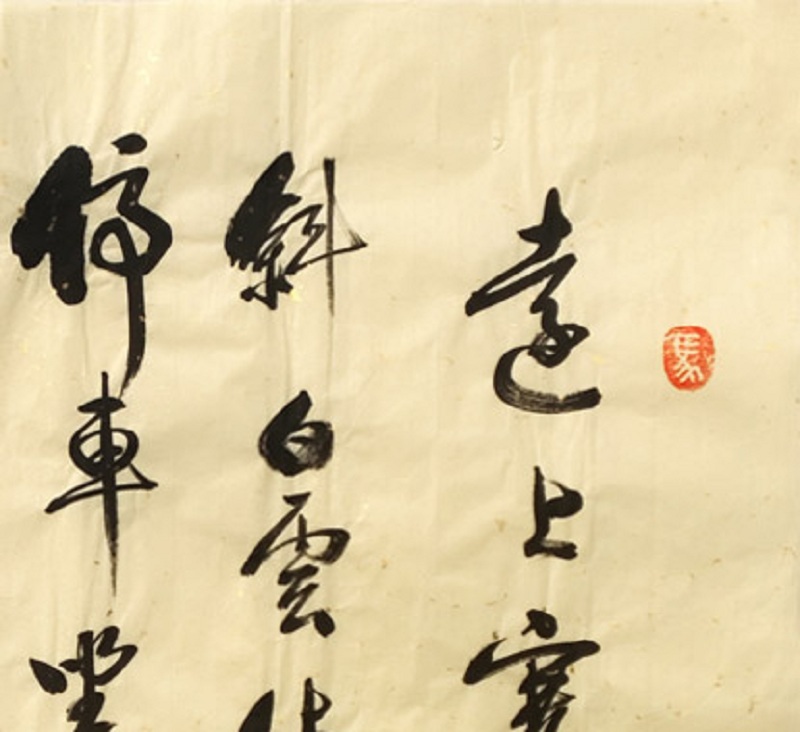 遠上寒
斜白雲
停車坐